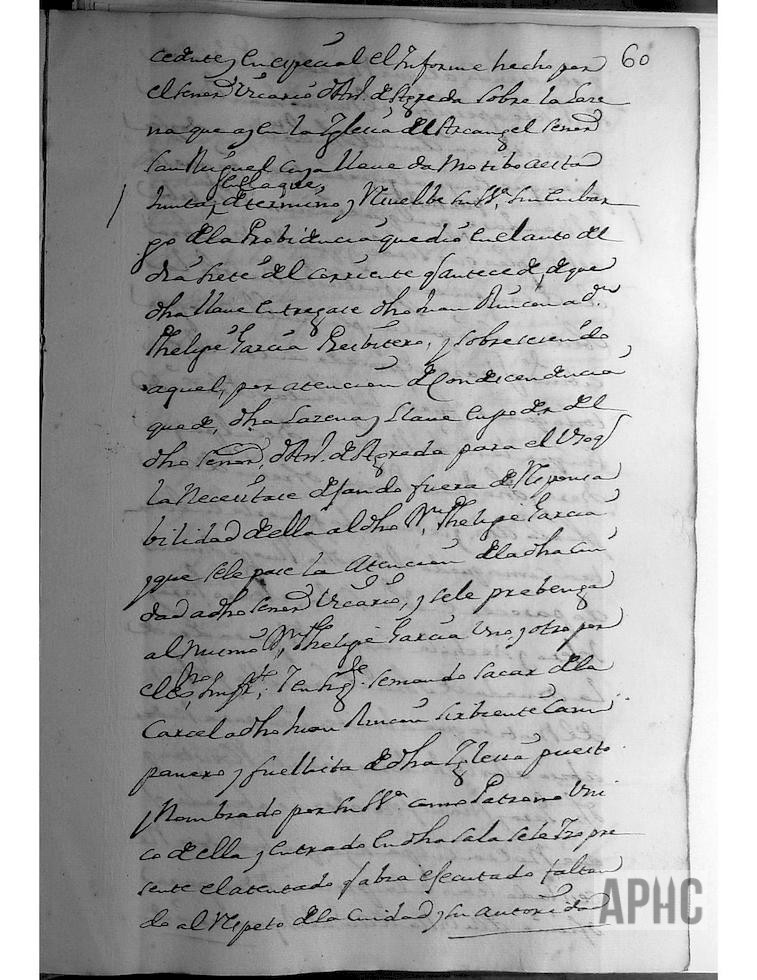 60
cedente, en especial el Informe hecho por
el señor Vicario dⁿ Ant. de Agreda sobre la Laze
na que ay en la Iglesia del Arcangel Señor
San Miguel cuya llave da motibo a esta
Junta,
determino, y Resuelbe su Sª. sin embar
go de la Probidencia que dio en el auto del
dia siete del corriente q antecede, de que
dha llave entregase dho Juan Rincon a dⁿ
Phelipe Garcia Presbitero, y sobreseiendo
aquel, por atencion de Condescendencia
quede, dha Lazena y Llave en poder del
dho señor, dⁿ Ant. de Agreda para el
la Necesitase dejando fuera de Responsa
bilidad de ella al dho Dⁿ Phelipe Garcia
y que se le pase la Atencion de la dha Ciu
dad a dho señor Vicario, y se le prebenga
al mismo Dⁿ Phelipe Garcia Uno, y otro por
el
se mando sacar de la
Carcel a dho Juan Rincon sirbiente Cam
panero, y fuellista de dha Iglesia puesto
y Nombrado por su Sª. como Patrono Uni
co de ella y entrado en dha Sala se le Izo pre
sente el atentado q abia ejecutado faltan
do al Respeto de la Ciudad y su autoridad
APHC